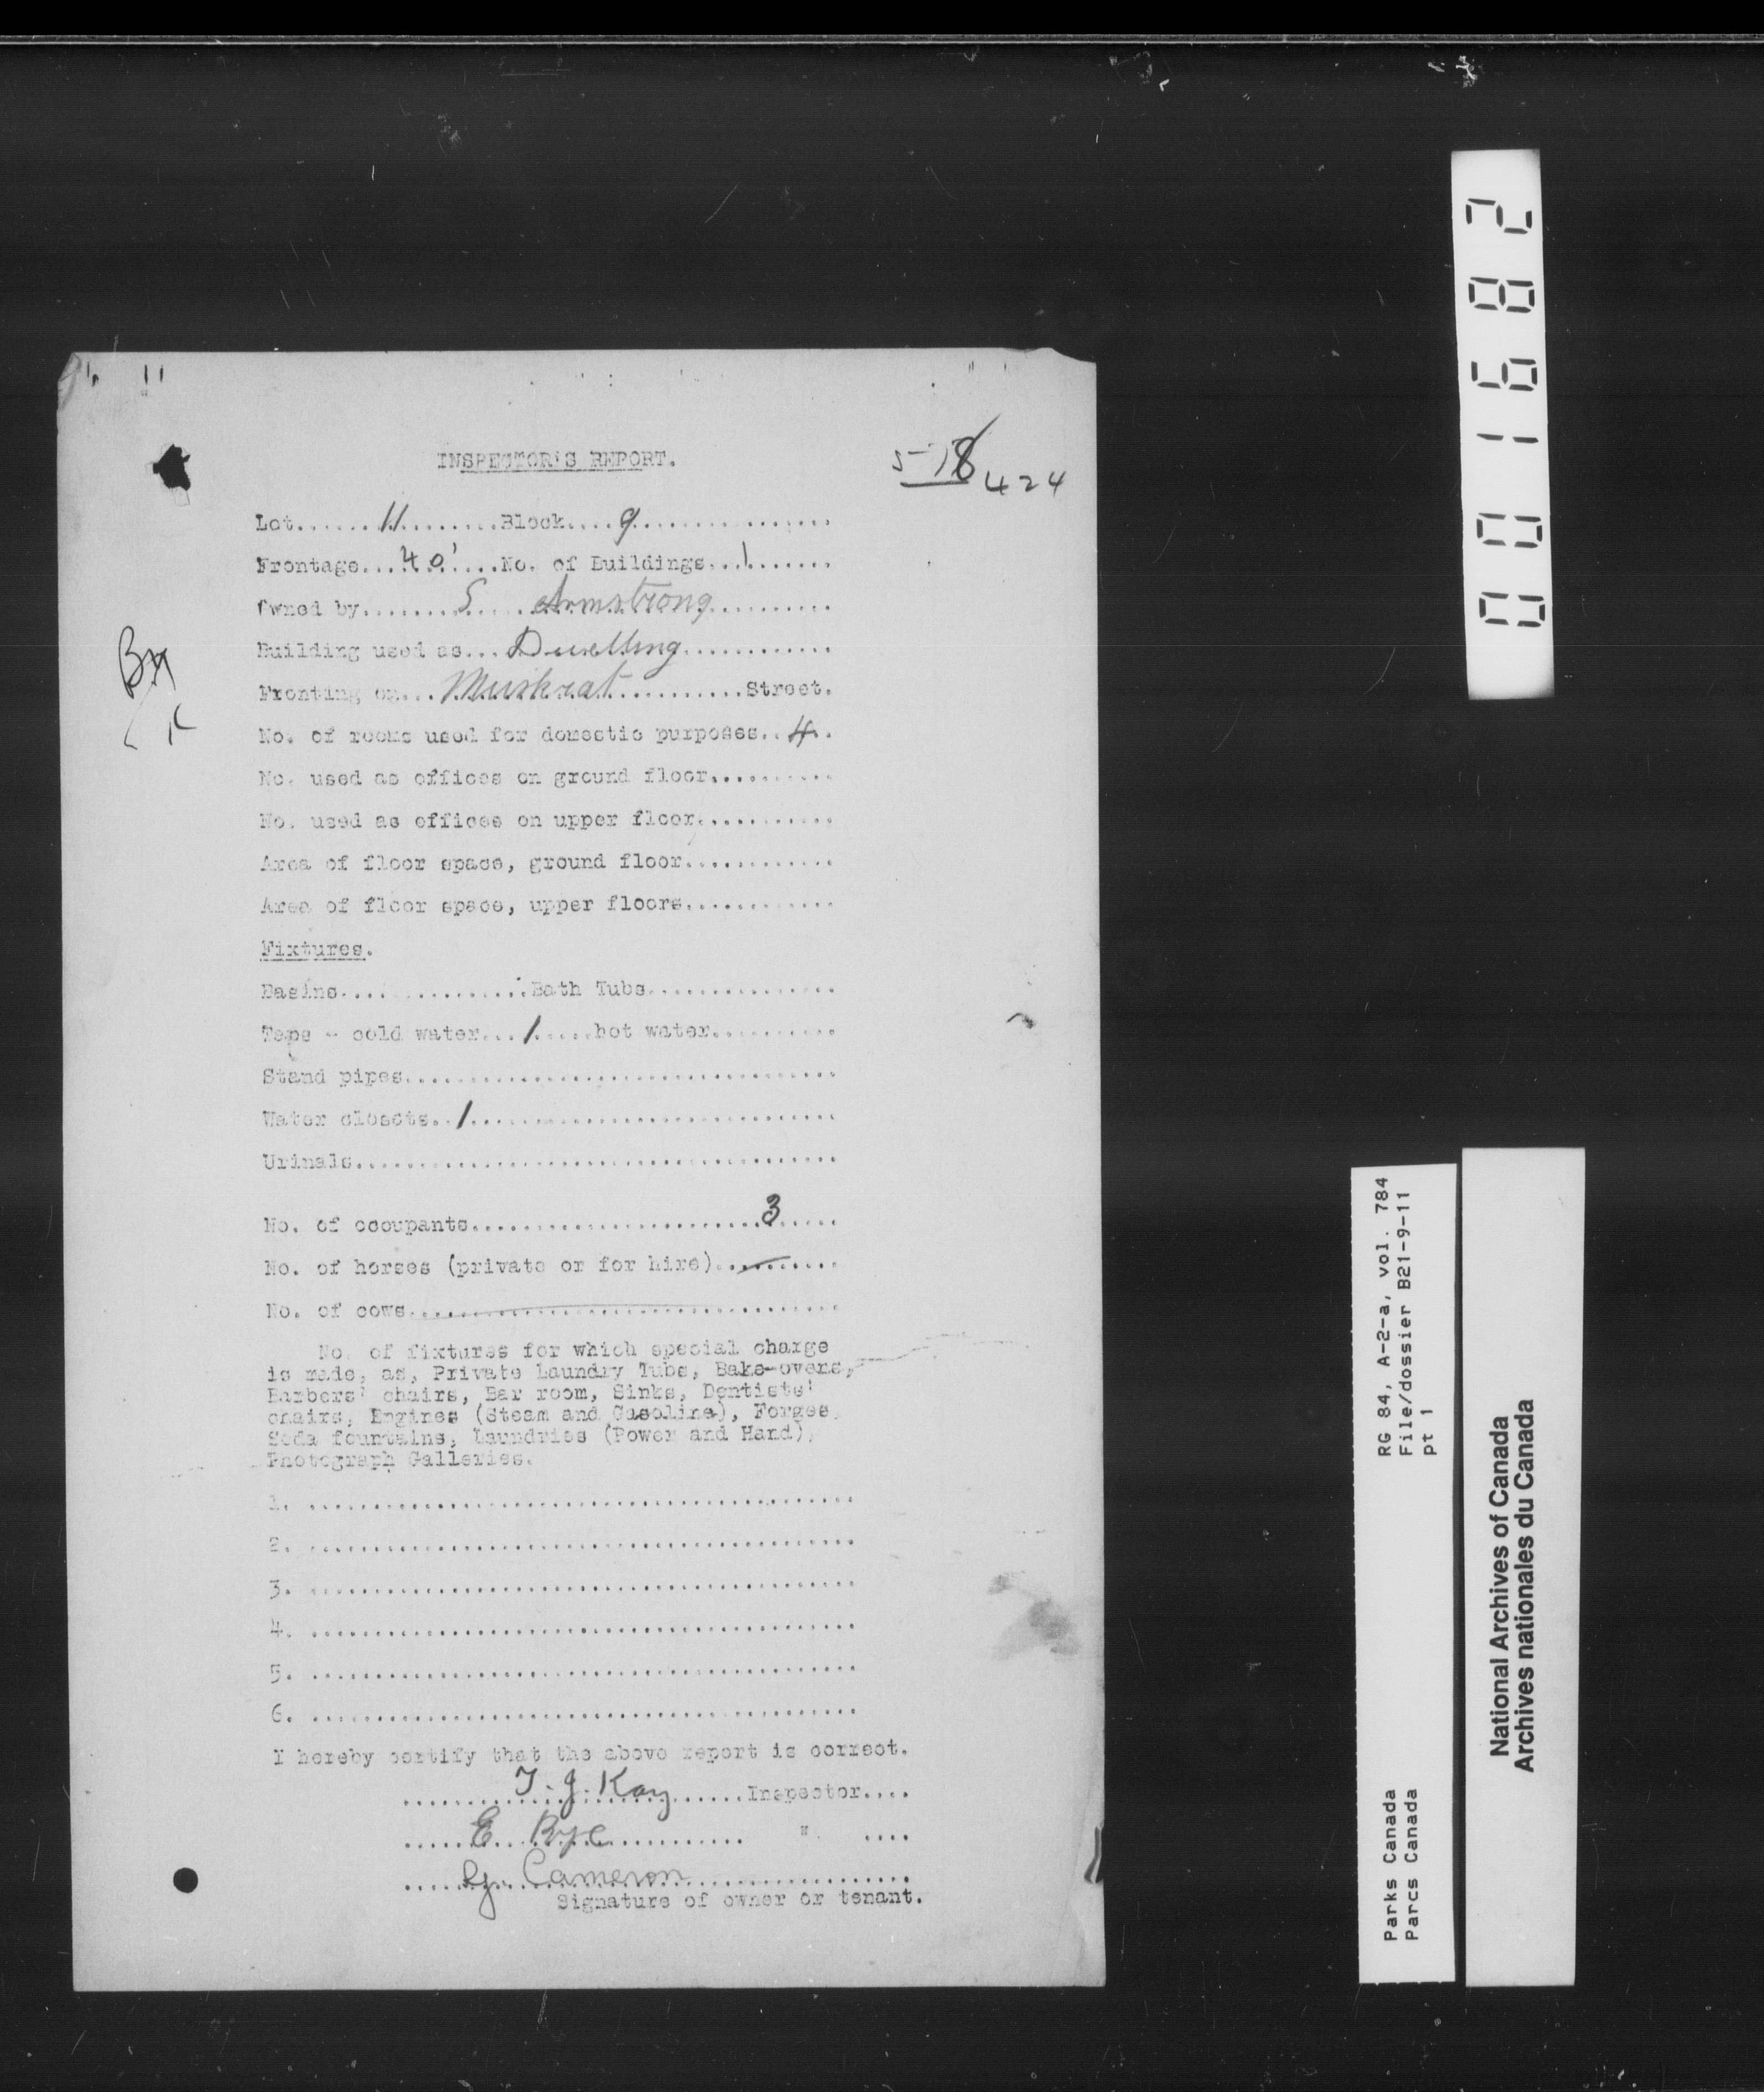 INSPECTOR'S REPORT.
5-18 424
Lot.......11.........Block....9.................
Frontage...40'.....No. of Buildings...1.........
Owned by........S.....Armstrong..........
Building used as...Dwelling.............
Fronting on...Muskrat...........Street.
No. of rooms used for domestic purposes..4..
No. used as offices on ground floor...........
No. used as offices on upper floor............
Area of floor space, ground floor.............
Area of floor space, upper floors.............
Fixtures.
Basins................Bath Tubs................
Taps - cold water...1.....hot water...........
Stand pipes....................................
Water closets..1...............................
Urinals........................................
No. of occupants.......................3.....
No. of horses (private or for hire)..........
No. of cows....................................
No. of fixtures for which special charge
is made, as, Private Laundry Tubs, Bake-ovens,
Barbers' chairs, Bar room, Sinks, Dentists'
chairs, Engines (Steam and Gasoline), Forges,
Soda fountains, Laundries (Power and Hand),
Photograph Galleries.
1. ..........................................
2. ..........................................
3. ..........................................
4. ..........................................
5. ..........................................
6. ..........................................
I hereby certify that the above report is correct.
.........T. J. Kay.......Inspector....
......E. Rye............ " ....
.....Cameron......................
Signature of owner or tenant.
001682
RG 84, A-2-a, vol. 784
File/dossier B21-9-11
pt 1
Parks Canada
Parcs Canada
National Archives of Canada
Archives nationales du Canada